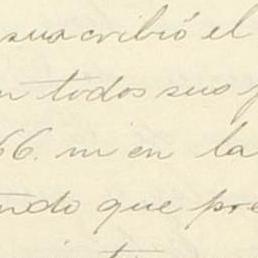 suscribió el
n todos sus
66. m en la
ndo que pre